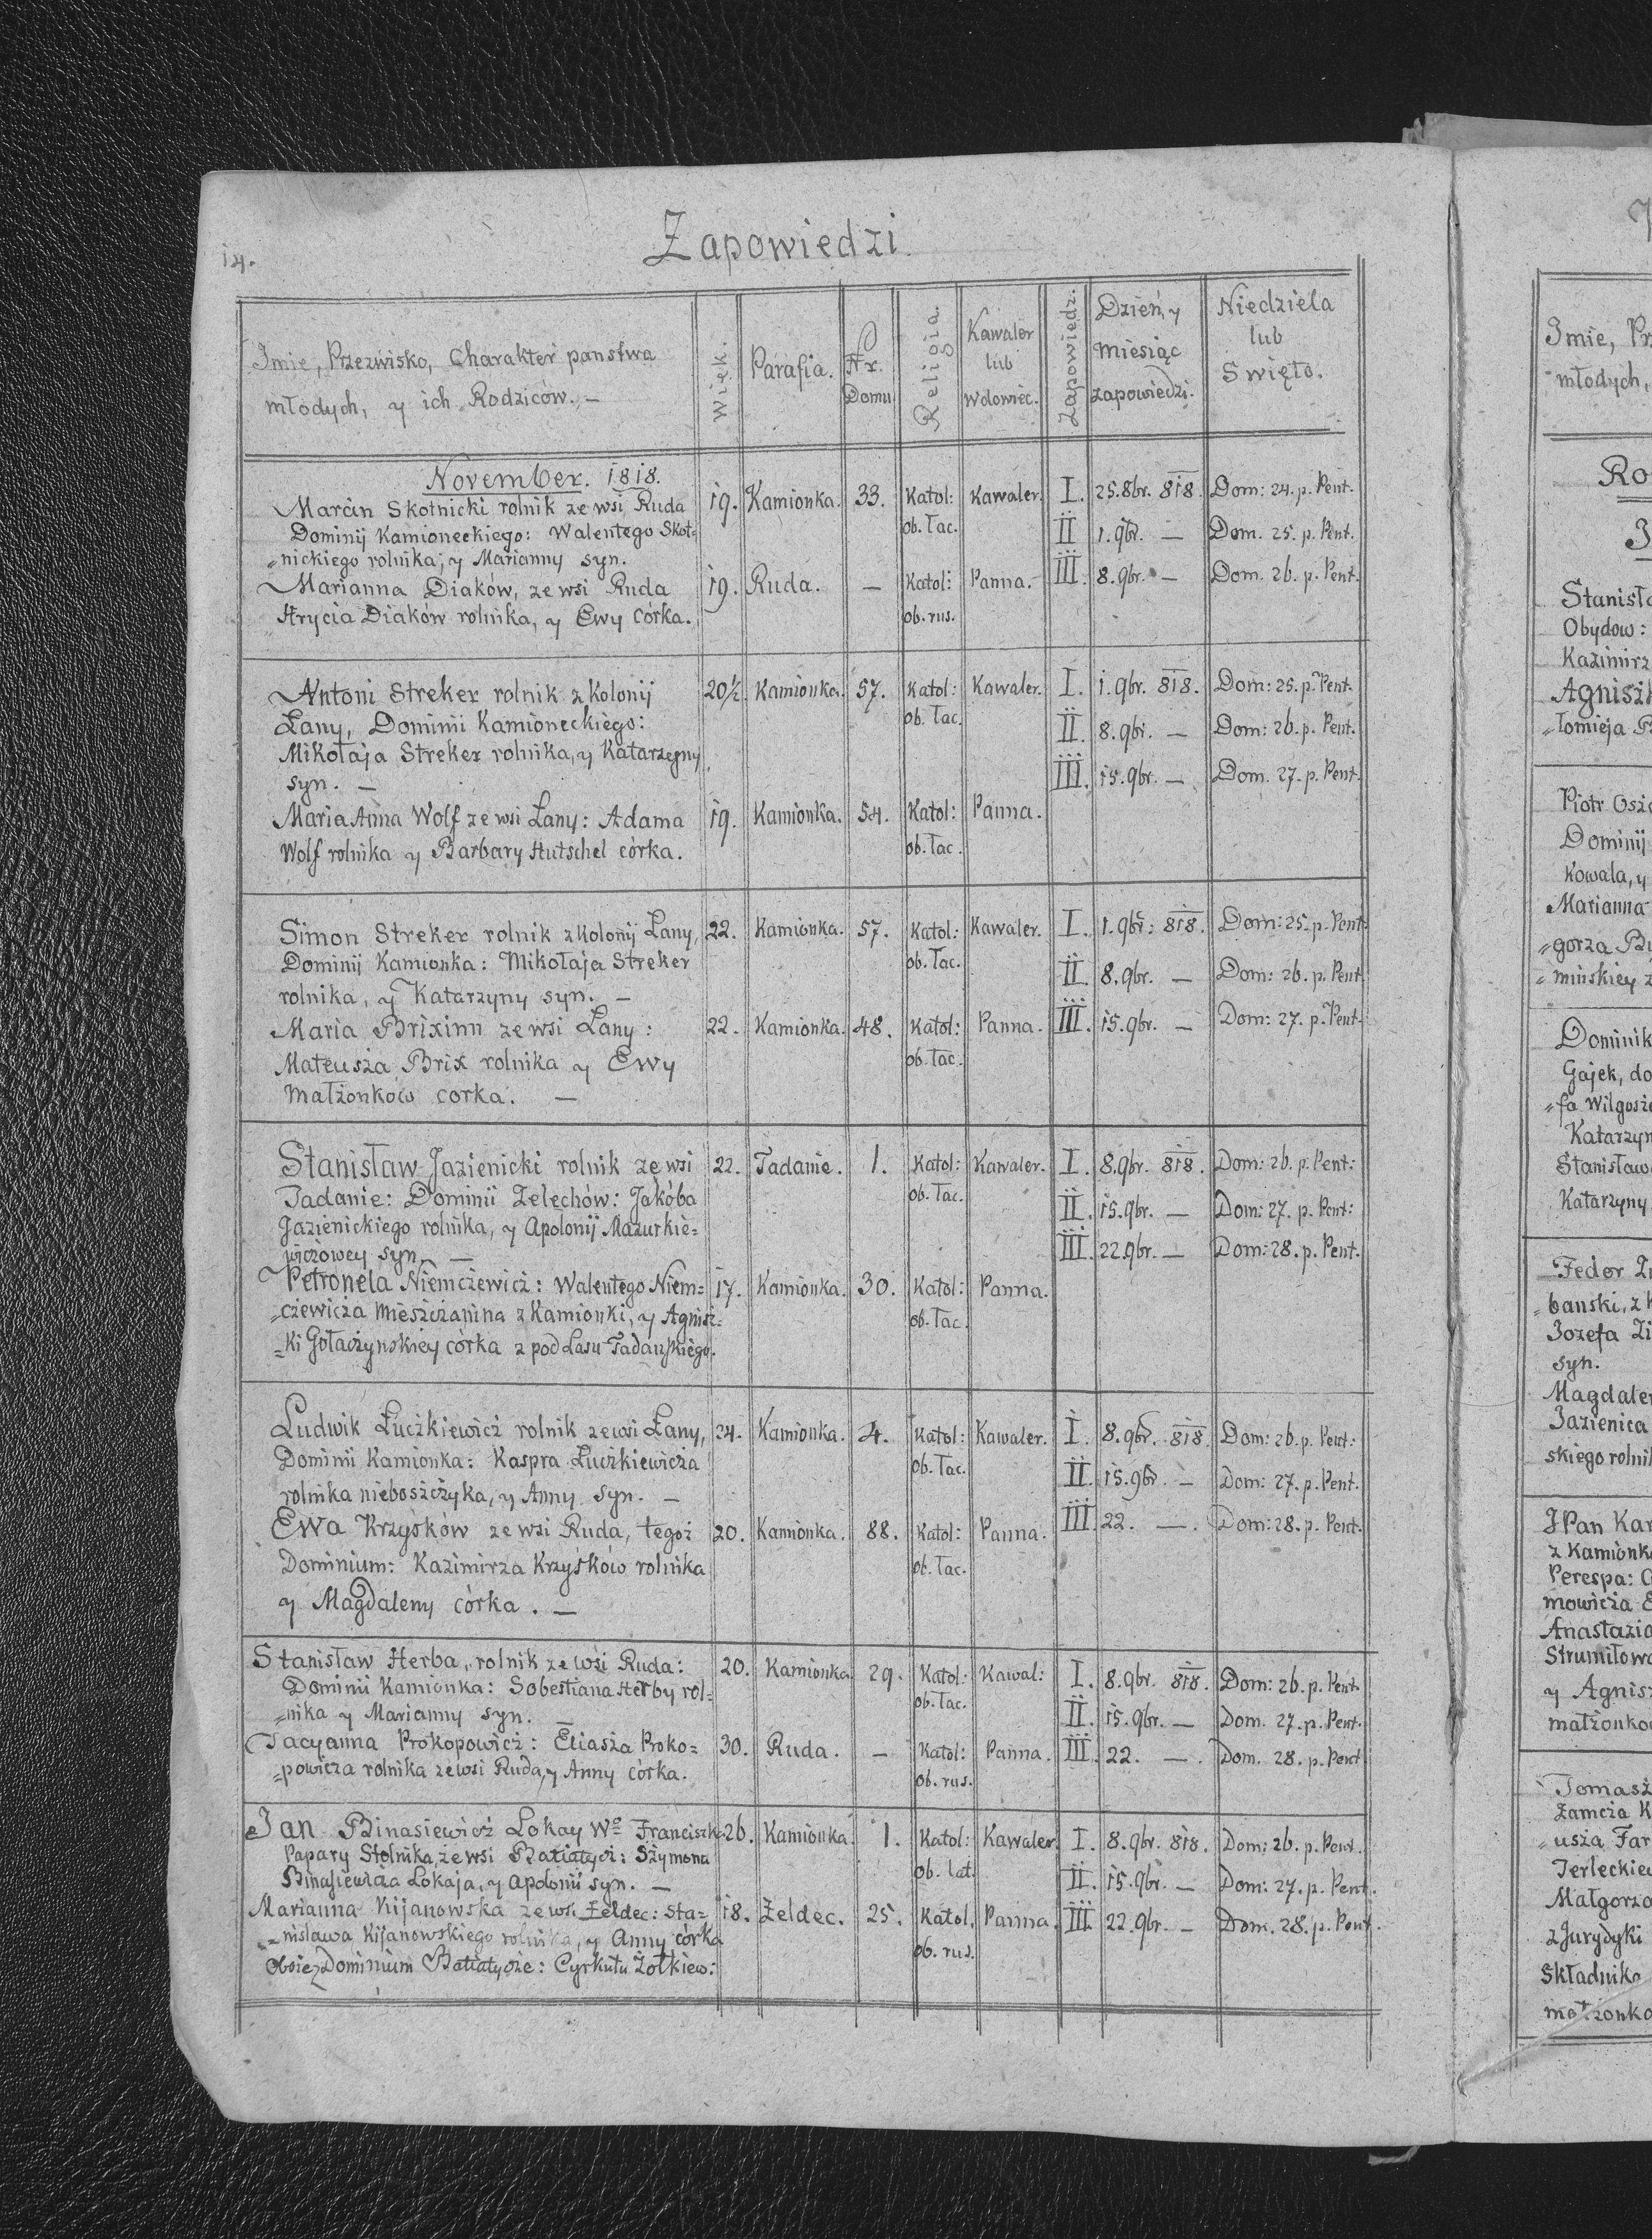 14.
Zapowiedzi.
Imie, Przezwisko, Charakter państwa
młodych, y ich Rodziców. –
Wiek.
Parafia.
Nr.
Domu
Religia.
Kawaler
lub
Wdowiec.
Zapowiedz.
Dzień, y
miesiąc
zapowiedzi.
Niedziela
lub
Swięto.
November. 1818.
Marcin Skotnicki rolnik ze wsi Ruda 19. Kamionka. 33. Katol: Kawaler. I. 25.8br. 818. Dom: 24. p. Pent.
Dominij Kamioneckiego: Walentego Skot= ob. łac. II 1. 9br. — Dom. 25. p. Pent.
=nickiego rolnika, y Marianny syn.
Marianna Diaków, ze wsi Ruda 19. Ruda. — Katol: Panna. III. 8. 9br. — Dom. 26. p. Pent.
Hrycia Diaków rolnika, y Ewy córka. ob. rus.
Antoni Streker rolnik z Kolonij 20½ Kamionka. 57. Katol: Kawaler. I. 1. 9br. 818. Dom: 25. p. Pent.
Łany, Dominii Kamioneckiego: ob. łac. II. 8. 9br. — Dom: 26. p. Pent.
Mikołaja Streker rolnika, y Katarzyny III. 15. 9br. — Dom. 27. p. Pent.
syn. —
Maria Anna Wolf ze wsi Łany: Adama 19. Kamionka. 54. Katol: Panna.
Wolf rolnika y Barbary Hutschel córka. ob. łac.
Simon Streker rolnik z Kolonij Łany, 22. Kamionka. 57. Katol: Kawaler. I. 1. 9br: 818. Dom: 25. p. Pent
Dominij Kamionka: Mikołaja Streker ob. łac. II. 8. 9br. — Dom: 26. p. Pent
rolnika, y Katarzyny syn. —
Maria Brixinn ze wsi Łany: 22. Kamionka. 48. Katol: Panna. III. 15. 9br. — Dom: 27. p. Pent.
Mateusza Brix rolnika y Ewy ob. łac.
małżonków corka. —
Stanisław Jazienicki rolnik ze wsi 22. Tadanie. 1. Katol: Kawaler. I. 8. 9br. 818. Dom: 26. p. Pent:
Tadanie: Dominii Zelechów: Jakóba ob. łac. II. 15. 9br. — Dom: 27. p. Pent:
Jazienickiego rolnika, y Apolonij Mazurkie= III. 22. 9br. — Dom: 28. p. Pent.
wiczowey syn. —
Petronela Niemczewicz: Walentego Niem= 17. Kamionka. 30. Katol: Panna.
=czewicza mieszczanina z Kamionki, y Agnisz= ob. łac.
=ki Gołaczynskiey córka z pod Lasu Tadańskiego.
Ludwik Łuczkiewicz rolnik ze wsi Łany, 24. Kamionka. 4. Katol: Kawaler. I. 8. 9br. 818. Dom: 26. p. Pent:
Dominii Kamionka: Kaspra Łuczkiewicza ob. łac. II. 15. 9br. — Dom: 27. p. Pent.
rolnika nieboszczyka, y Anny syn. —
Ewa Krzyśków ze wsi Ruda, tegoż 20. Kamionka. 88. Katol: Panna. III. 22. — . Dom: 28. p. Pent.
Dominium: Kazimirza Krzyśków rolnika ob. łac.
y Magdaleny córka. —
Stanisław Herba, rolnik ze wsi Ruda: 20. Kamionka 29. Katol: Kawal: I. 8. 9br. 818. Dom: 26. p. Pent.
Dominii Kamionka: Sobestiana Herby rol= ob. łac. II. 15. 9br. — Dom. 27. p. Pent.
=nika y Marianny syn. —
Tacyanna Prokopowicz: Eliasza Proko= 30. Ruda. — Katol: Panna. III. 22. — . Dom. 28. p. Pent
=powicza rolnika ze wsi Ruda, y Anny córka. ob. rus.
Jan Binasiewicz Lokay Wo Franciszk. 26. Kamionka. 1. Katol: Kawaler. I. 8. 9br. 818. Dom: 26. p. Pent.
Papary Stolnika, ze wsi Batiatycz: Szymona ob. lat. II. 15. 9br. — Dom: 27. p. Pent.
Binasiewicza Lokaja, y Apolonii syn. —
Marianna Kijanowska ze wsi Żeldec: Sta= 18. Żeldec. 25. Katol. Panna. III. 22. 9br. — Dom. 28. p. Pent.
=nisława Kijanowskiego rolnika, y Anny córka ob. rus.
Dominium Batiatycze: Cyrkułu Żołkiew:
Imie, Prz
młodych,
Stanisła
Obydow:
Kazimirz
Agnisz
Dominij
Kowala, y
Marianna
=mińskiey z
Dominik
Gajek, do
Katarzyn
Stanisław
Katarzyny
Fedor
Jozefa
syn.
Magdale
Jazienica
skiego rolni
JPan Kar
z Kamionk
Perespa:
mowicza
Anastazia
Strumiłow
y Agnis
małżonko
Tomasz
Zamcza K
Małgorz
z Jurydyki
Składnik
małżonko